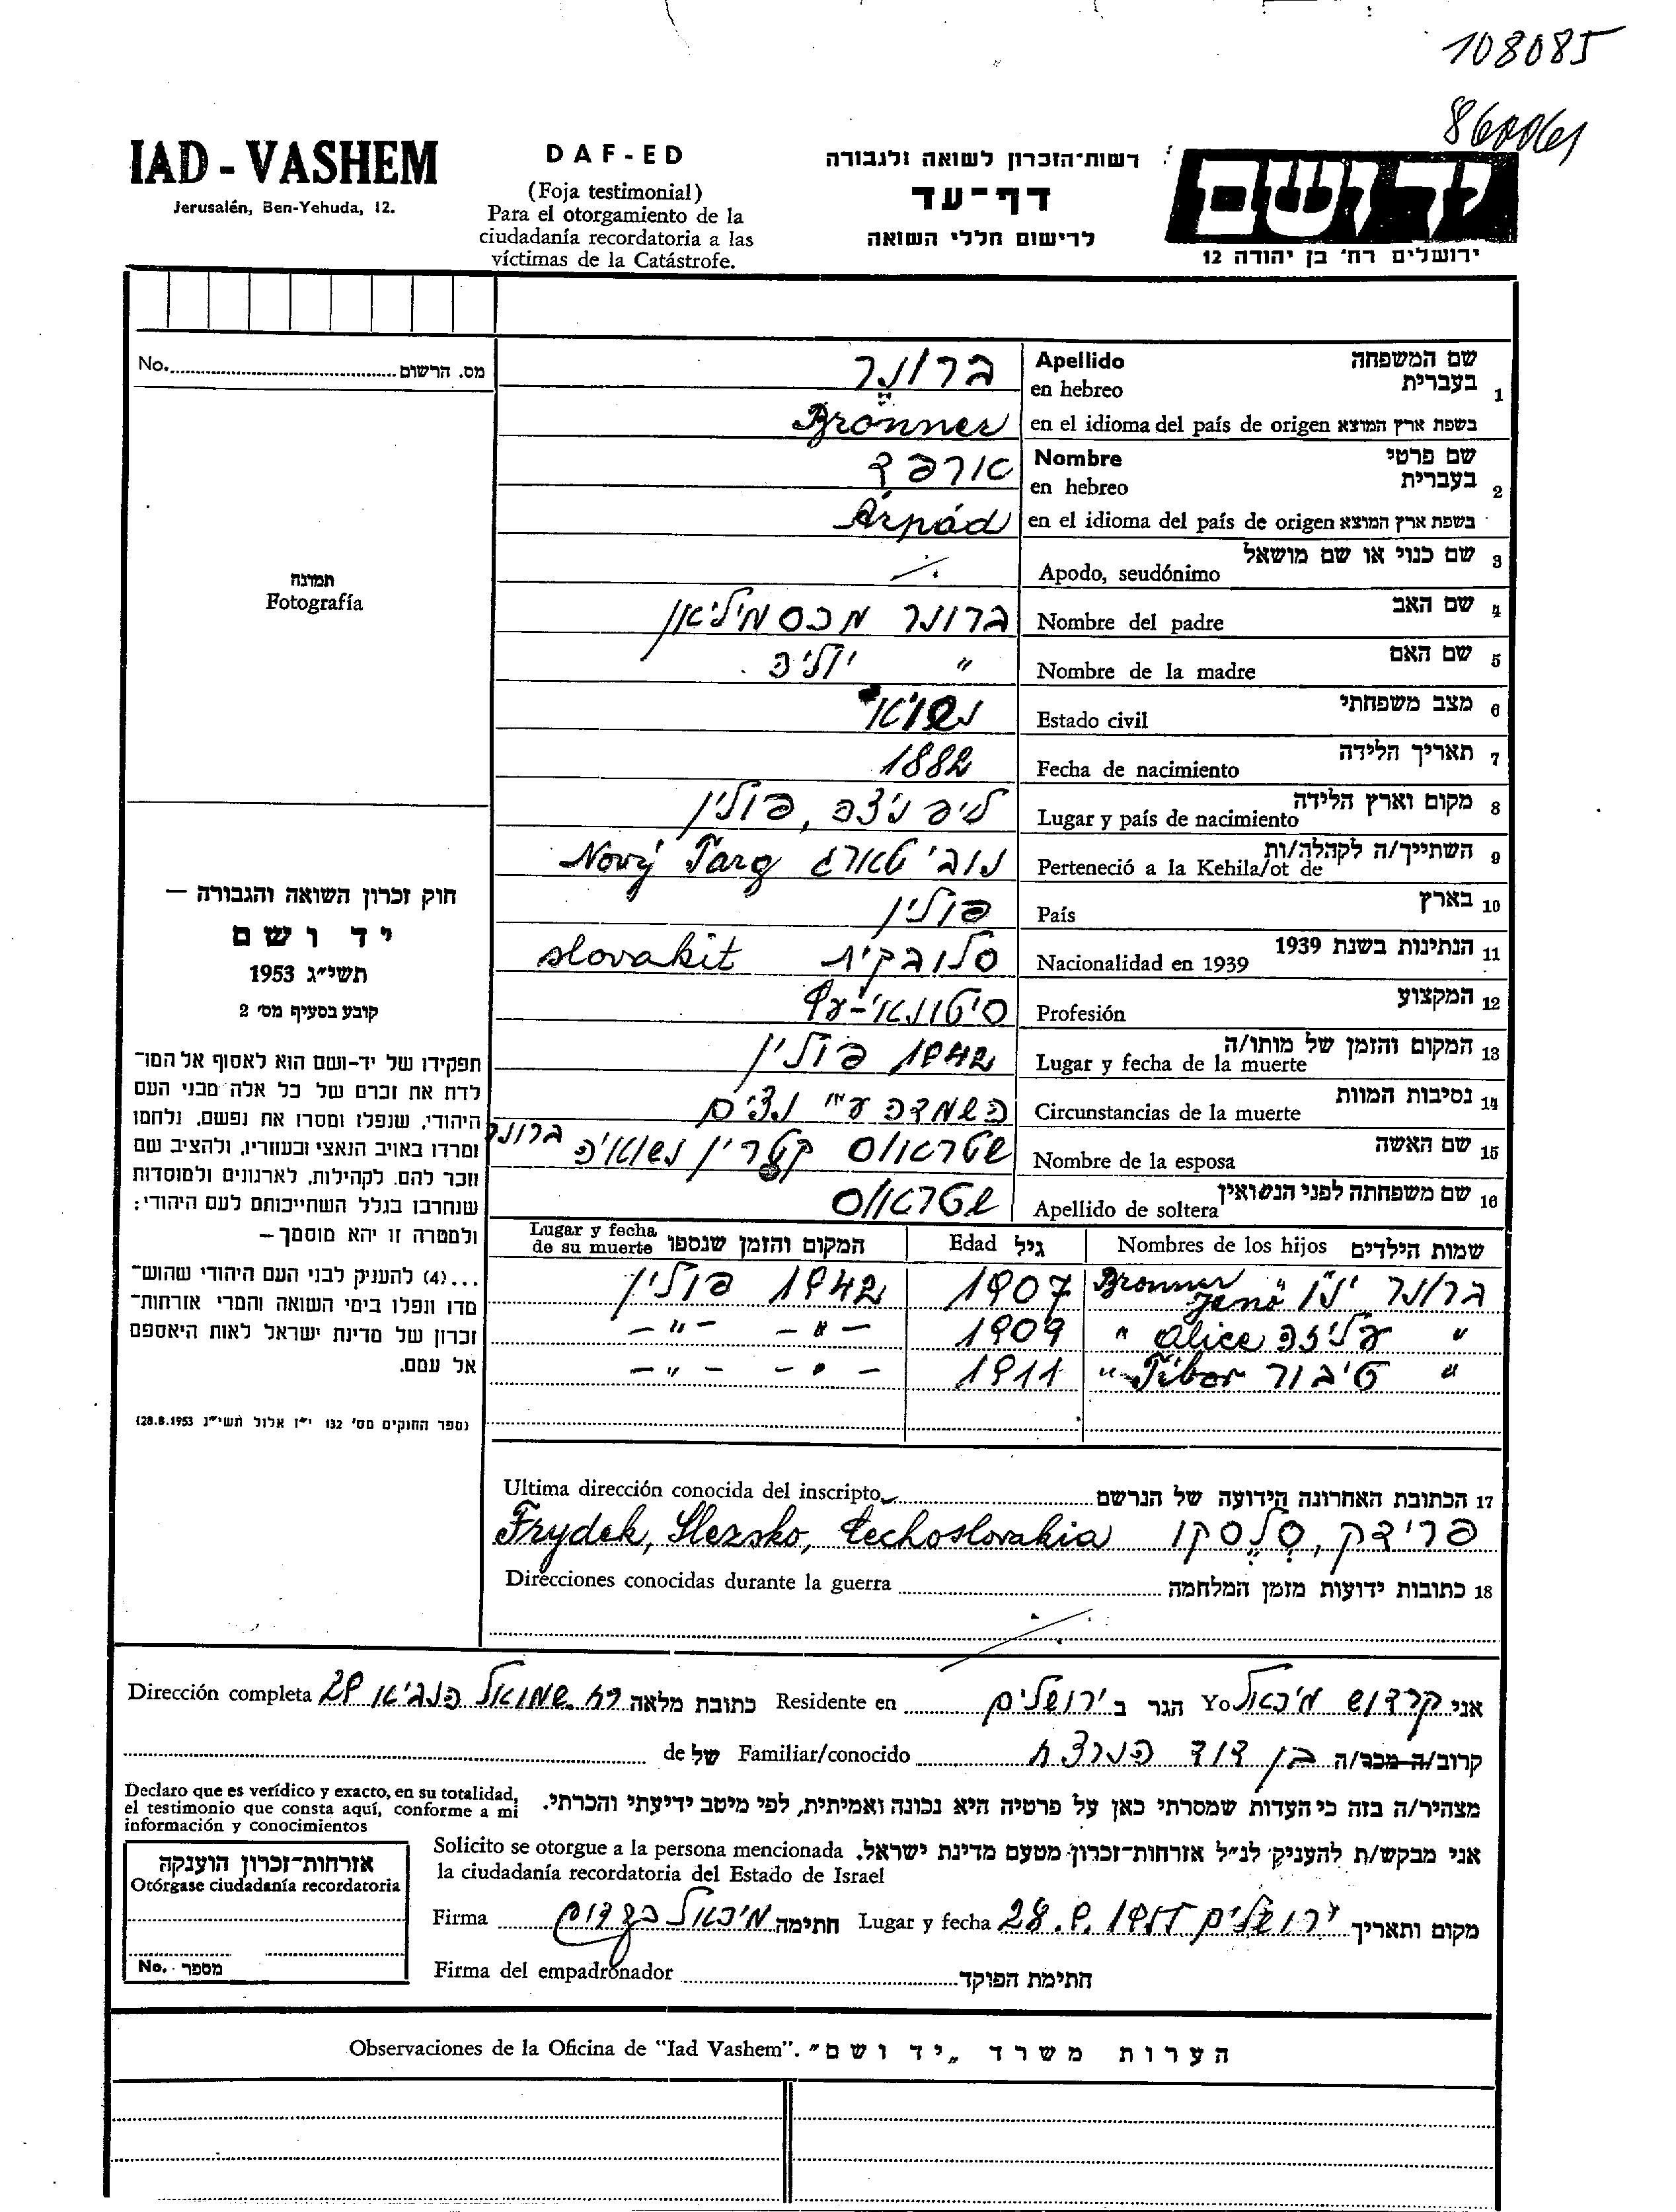 108085
860061
IAD - VASHEM
Jerusalén, Ben-Yehuda, 12.
DAF-ED
(Foja testimonial)
Para el otorgamiento de la
ciudadanía recordatoria a las
víctimas de la Catástrofe.
רשות־הזכרון לשואה ולגבורה
דף־עד
לרישום חללי השואה
יד ושם
ירושלים רח' בן יהודה 12
No. מס. הרשום
תמונה
Fotografía
שם המשפחה Apellido
1 בעברית en hebreo ברונר
בשפת ארץ המוצא en el idioma del país de origen Brönner
שם פרטי Nombre
2 בעברית en hebreo ארפד
בשפת ארץ המוצא en el idioma del país de origen Árpád
3 שם כנוי או שם מושאל Apodo, seudónimo
4 שם האב Nombre del padre ברונר מכסמיליאן
5 שם האם Nombre de la madre " יוליה
6 מצב משפחתי Estado civil נשוי
7 תאריך הלידה Fecha de nacimiento 1882
8 מקום וארץ הלידה Lugar y país de nacimiento ליפניצה, פולין
9 השתייך/ה לקהלה/ות Perteneció a la Kehila/ot de נובי טארג Nový Targ
10 בארץ País פולין
11 הנתינות בשנת 1939 Nacionalidad en 1939 סלובקית slovakit
12 המקצוע Profesión סיטונאי-עץ
13 המקום והזמן של מותו/ה Lugar y fecha de la muerte 1942 פולין
14 נסיבות המוות Circunstancias de la muerte השמדה ע"י נצים
15 שם האשה Nombre de la esposa שטראוס קטרין נשואיה ברונר
16 שם משפחתה לפני הנשואין Apellido de soltera שטראוס
שמות הילדים Nombres de los hijos גיל Edad המקום והזמן שנספו Lugar y fecha de su muerte
ברונר ינו Bronner Jenö 1907 1942 פולין
" עליזה Alice " 1909 — " — — " —
" טיבור Tibor " 1911 — " — — " —
חוק זכרון השואה והגבורה —
יד ושם
תשי״ג 1953
קובע בסעיף מס׳ 2
תפקידו של יד-ושם הוא לאסוף אל המו־
לדת את זכרם של כל אלה מבני העם
היהודי, שנפלו ומסרו את נפשם, נלחמו
ומרדו באויב הנאצי ובעוזריו, ולהציב שם
וזכר להם, לקהילות, לארגונים ולמוסדות
שנחרבו בגלל השתייכותם לעם היהודי;
ולמטרה זו יהא מוסמך —
...(4) להעניק לבני העם היהודי שהוש־
מדו ונפלו בימי השואה והמרי אזרחות־
זכרון של מדינת ישראל לאות היאספם
אל עמם.
(ספר החוקים מס׳ 132 י״ז אלול תשי״ג 28.8.1953)
17 הכתובת האחרונה הידועה של הנרשם Ultima dirección conocida del inscripto
פרידק, סלסקו Frydek, Slezsko, Čechoslovakia
18 כתובות ידועות מזמן המלחמה Direcciones conocidas durante la guerra
אני Yo קרדוש מיכאל הגר ב Residente en ירושלים כתובת מלאה Dirección completa רח שמואל הנגיא 29
קרוב/ה מכר/ה Familiar/conocido בן דוד הנרצח של de
מצהיר/ה בזה כי העדות שמסרתי כאן על פרטיה היא נכונה ואמיתית, לפי מיטב ידיעתי והכרתי.
Declaro que es verídico y exacto, en su totalidad,
el testimonio que consta aquí, conforme a mi
información y conocimientos
אני מבקש/ת להעניק לנ״ל אזרחות־זכרון מטעם מדינת ישראל.
Solicito se otorgue a la persona mencionada
la ciudadanía recordatoria del Estado de Israel
מקום ותאריך Lugar y fecha ירושלים 28.9.1955 חתימה Firma מיכאל קרדוש
חתימת הפוקד Firma del empadronador
אזרחות־זכרון הוענקה
Otórgase ciudadanía recordatoria
No. מספר
Observaciones de la Oficina de "Iad Vashem". הערות משרד „יד ושם"